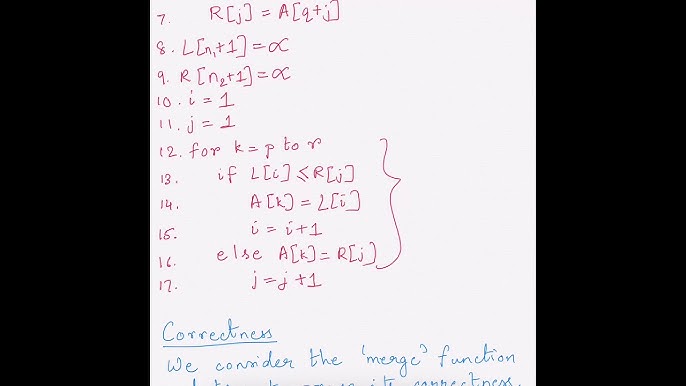 7. R[j] = A[q+j]
8. L[n₁+1] = ∝
9. R[n₂+1] = ∝
10. i = 1
11. j = 1
12. for k = p to r
13. if L[i] ≤ R[j]
14. A[k] = L[i]
15. i = i+1
16. else A[k] = R[j]
17. j = j+1
Correctness
We consider the 'merge' function
its correctness.